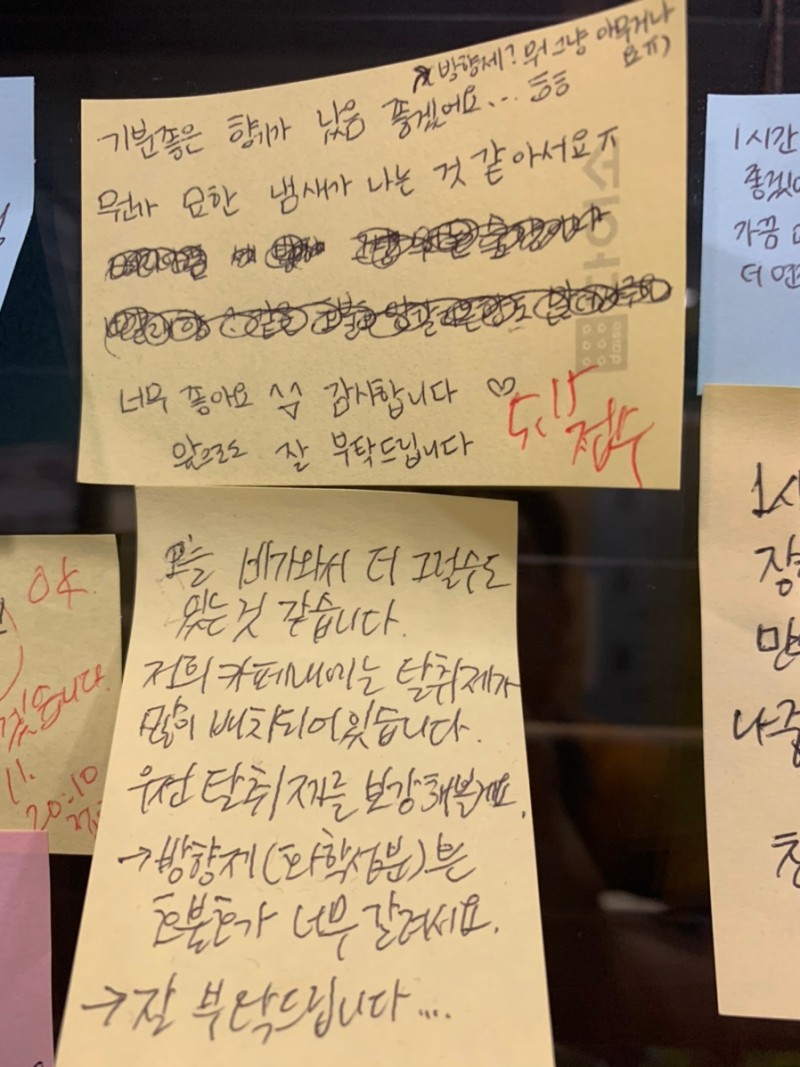 방향제? 뭐 그냥 아무거나
요ㅠ)
기분좋은 향기가 났음 좋겠어요... ㅎㅎ
뭔가 묘한 냄새가 나는 것 같아서요ㅠ
너무 좋아요 ^^ 감사합니다 ♡
앞으로도 잘 부탁드립니다
5.15
접수
오늘 비가와서 더 그럴수도
있는것 같습니다.
저희 카페내에는 탈취제가
많이 배치되어있습니다.
우선 탈취제를 보강해볼게요.
→방향제(화학성분)는
호불호가 너무 갈려서요.
→잘 부탁드립니다....
OK
겠습니다.
11.
20:10
1시간
좋겠어
가끔
더
1시
나중